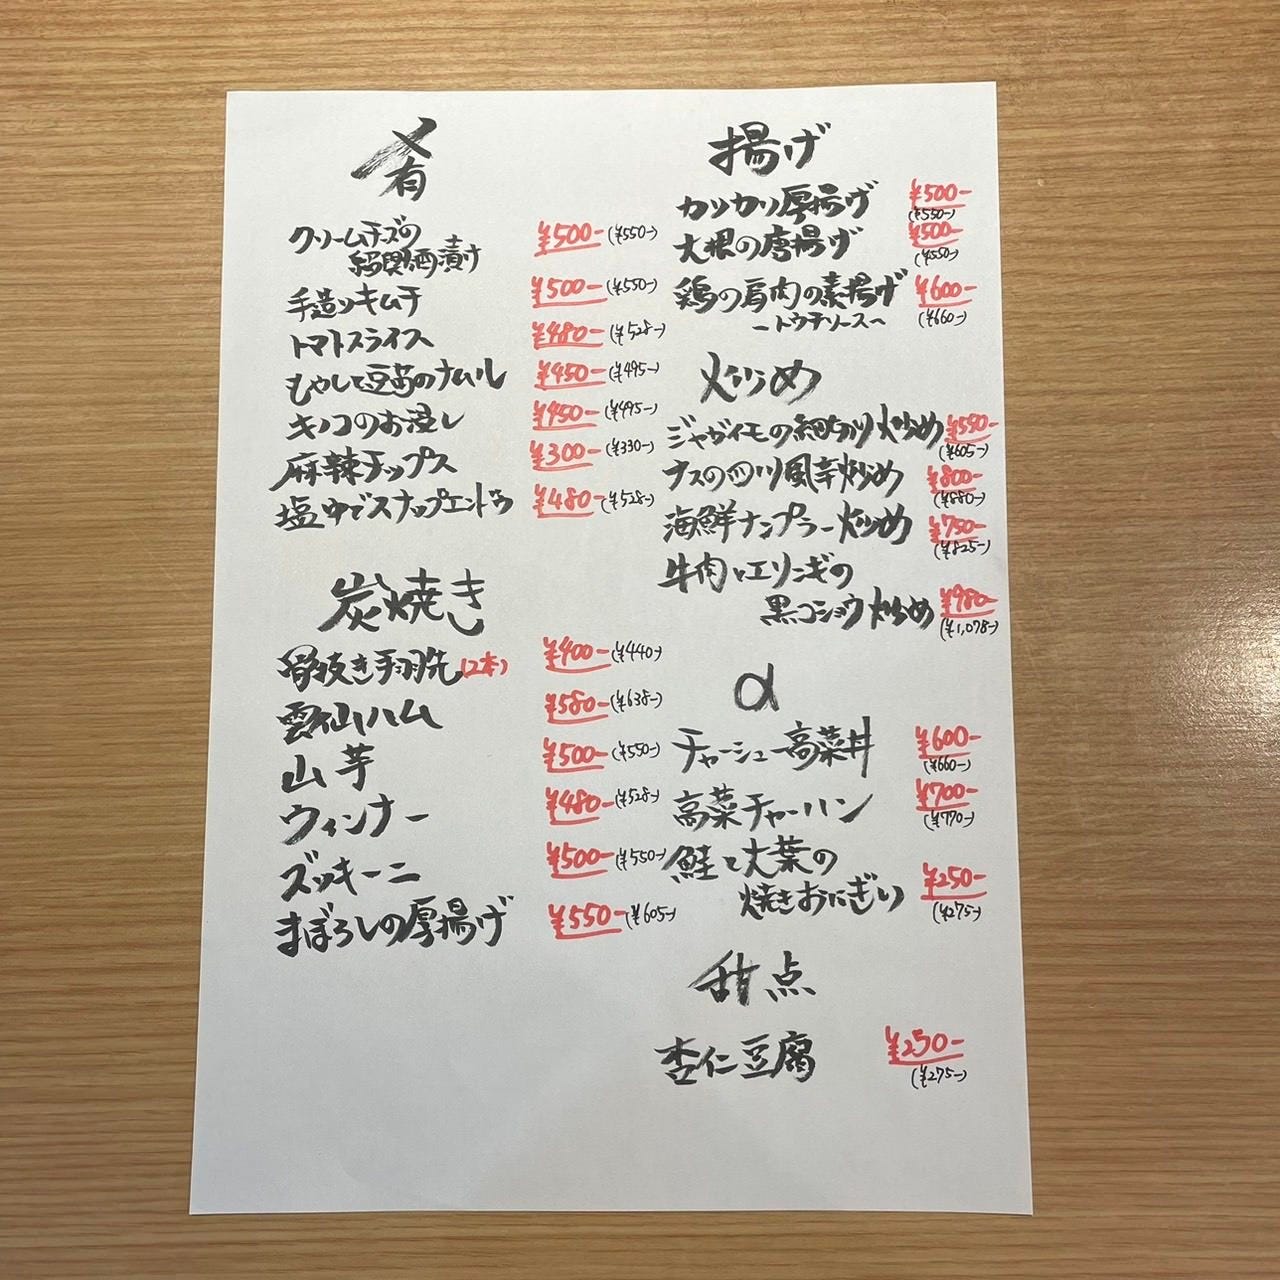 肴
クリームチーズの
紹興酒漬け ¥500- (¥550-)
手造りキムチ ¥500- (¥550-)
トマトスライス ¥480- (¥528-)
もやしと豆苗のナムル ¥450- (¥495-)
キノコのお浸し ¥450- (¥495-)
麻辣チップス ¥300- (¥330-)
塩ゆでスナップエンドウ ¥480- (¥528-)
炭焼き
骨抜き手羽先(2本) ¥400- (¥440-)
雲仙ハム ¥580- (¥638-)
山芋 ¥500- (¥550-)
ウィンナー ¥480- (¥528-)
ズッキーニ ¥500- (¥550-)
まぼろしの厚揚げ ¥550- (¥605-)
揚げ
カリカリ厚揚げ ¥500- (¥550-)
大根の唐揚げ ¥500- (¥550-)
鶏の肩肉の素揚げ ¥600- (¥660-)
~トウチソース~
炒め
ジャガイモの細切り炒め ¥550- (¥605-)
ナスの四川風辛炒め ¥800- (¥880-)
海鮮ナンプラー炒め ¥750- (¥825-)
牛肉とエリンギの
黒コショウ炒め ¥980- (¥1,078-)
α
チャーシュー高菜丼 ¥600- (¥660-)
高菜チャーハン ¥700- (¥770-)
鮭と大葉の
焼きおにぎり ¥250- (¥275-)
甜点
杏仁豆腐 ¥250- (¥275-)